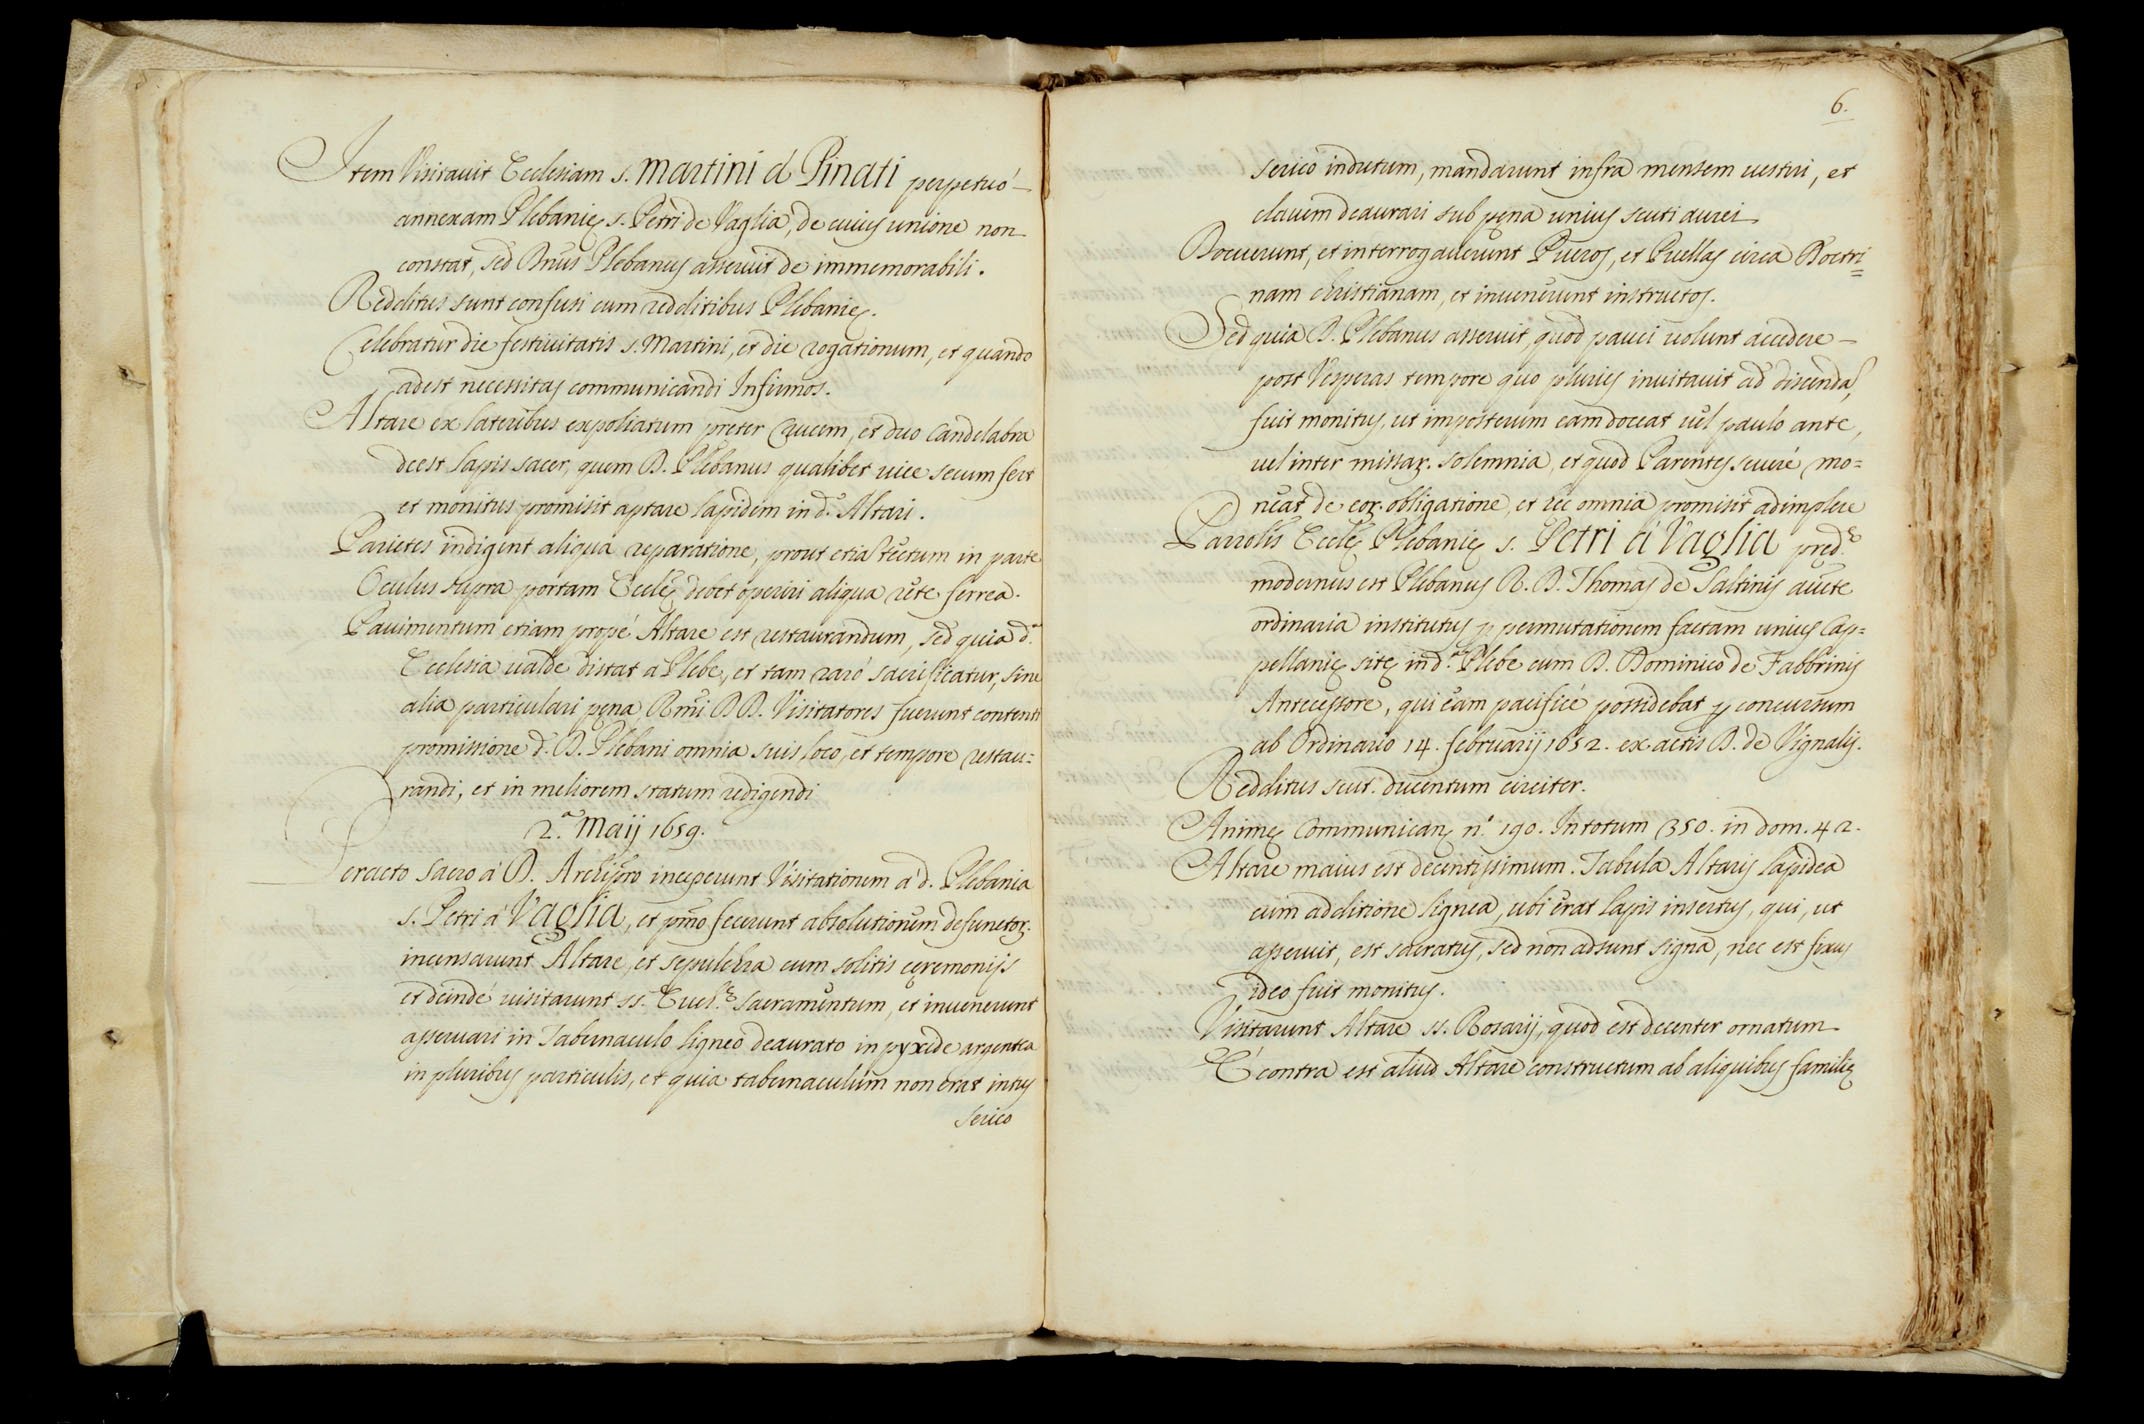 Item Visitauit Ecclesiam s. Martini à Pinati perpetuó
annexam Plebanię s. Petri de Vaglia, de cuius unione non
constat, sed Dnūs Plebanus asseruit de immemorabili.
Redditus sunt confusi cum redditibus Plebanię.
Celebratur die festiuitatis s. Martini, et die rogationum, et quando
adest necessitas communicandi Infirmos.
Altare ex lateribus expoliatum pręter Crucem, et duo candelabra
deest lapis sacer, quem D. Plebanus qualibet uice secum fert
et monitus promisit aptare lapidem in d.º Altari.
Parietes indigent aliqua reparatione, prout etiā tectum in parte
Oculus supra portam Eccłę debet operiri aliqua rete ferrea.
Pauimentum etiam propé Altare est restaurandum, sed quia d.ª
Ecclesia ualde distat a Plebe, et tam raró sacrificatur, sine
alia particulari pęna Rm̄i DD. Visitatores fuerunt contenti
promissione d. D. Plebani omnia suis loco, et tempore restau=
randi, et in meliorem statum redigendi
2.ª Maij 1659.
Peracto sacro á D. Archip̄ro inceperunt Visitationem á d. Plebania
s. Petri á Vaglia, et pm̄o fecerunt absolutionem defunctoꝝ.
incensarunt Altare, et sepulchra cum solitis cęremonijs
et deindé uisitarunt ss. Euch.ę sacramentum, et inuenerunt
asseruari in Tabernaculo ligneo deaurato in pyxide argentea
in pluribus particulis, et quia tabernaculum non erat intus
serico
6.
serico indutum, mandarunt infra mensem uestiri, et
clauem deaurari sub pęna unius scuti aurei
Docuerunt, et interrogauerunt Pueros, et Puellas circa Doctri=
nam christianam, et inuenerunt instructos.
Sed quia D. Plebanus asseruit, quod pauci uolunt accedere
post Vesperas tempore quo pluries inuitauit ad discendā,
fuit monitus, ut imposterum eam doceat uel paulo ante,
uel inter missaꝝ. solemnia, et quod Parentes seueré mo=
neat de eoꝝ. obligatione, et sic omnia promisit adimplere
Parrolis Eccłę Plebanię s. Petri á Vaglia pręd.ę
modernus est Plebanus R. D. Thomas de Saltinis aūcte
ordinaria institutus ꝑ permutationem factam unius Cap=
pellanię sitę in d.ª Plebe cum D. Dominico de Fabbrinis
Antecessore, qui eam pacificé possidebat ꝑ concursum
ab Ordinario 14. februarij 1652. ex actis D. de Vignalis.
Redditus scut. ducentum circiter.
Animę Communicanꝫ n.º 190. In totum 350. in dom. 42.
Altare maius est decentissimum. Tabula Altaris lapidea
cum additione lignea, ubi erat lapis insertus, qui, ut
asseruit, est sacratus, sed non adsunt signa, nec est fixus
ideo fuit monitus.
Visitarunt Altare ss. Rosarij, quod est decenter ornatum
E' contra est aliud Altare constructum ab aliquibus familię